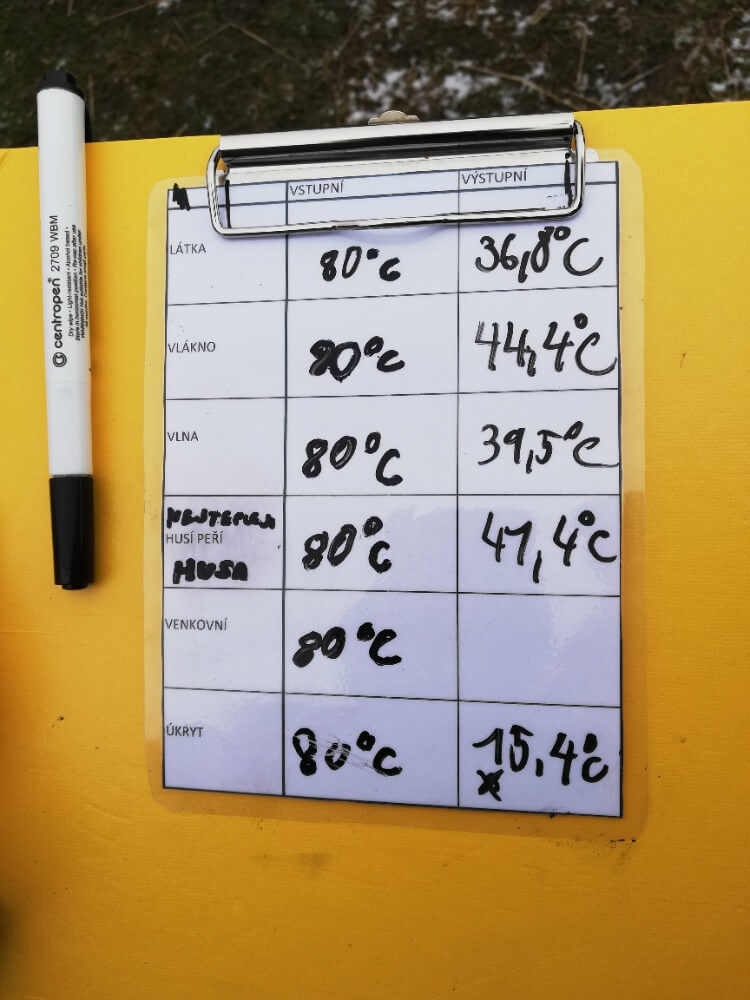 VSTUPNÍ VÝSTUPNÍ
LÁTKA 80°C 36,8°C
VLÁKNO 80°C 44,4°C
VLNA 80°C 39,5°C
HUSÍ PEŘÍ 80°C 41,4°C
HUSA
VENKOVNÍ 80°C
ÚKRYT 80°C 15,4°C
centropen 2709 WBM
Dry wipe • Light-resistant • Alcohol based •